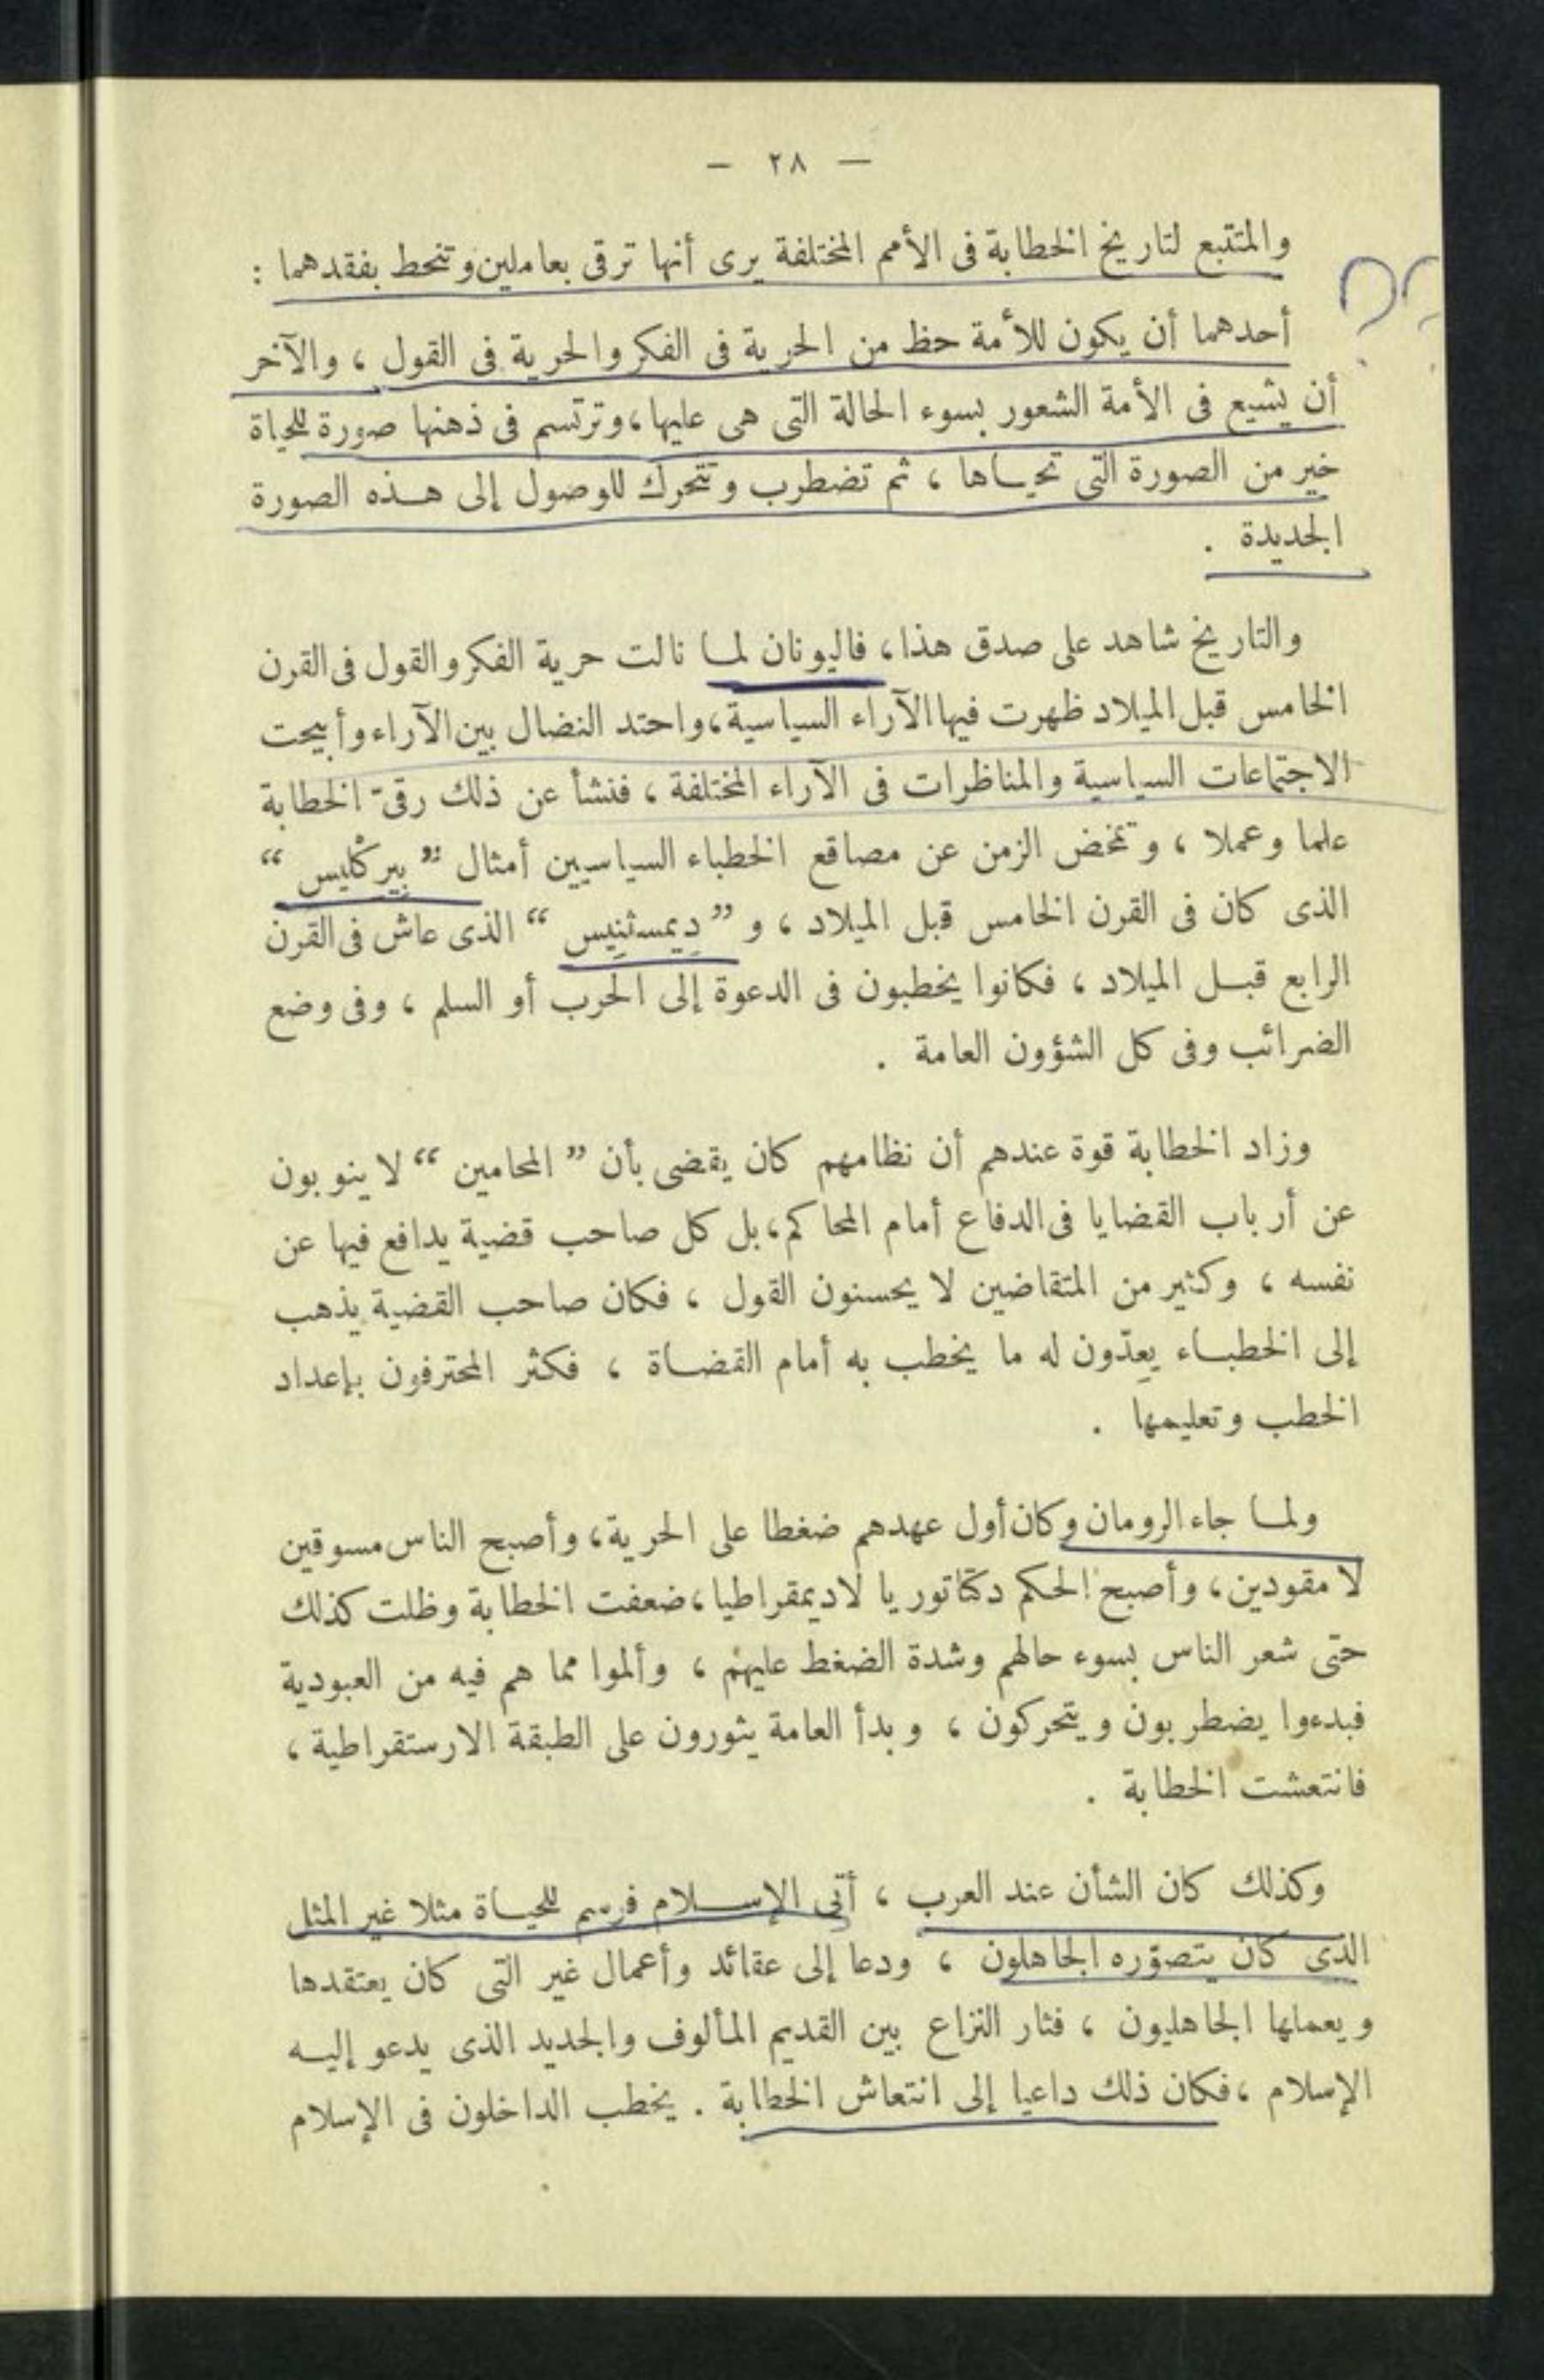 — ٢٨ —
والمتتبع لتاريخ الخطابة فى الأمم المختلفة يرى أنها ترقى بعاملين وتنحط بفقدهما :
أحدهما أن يكون للأمة حظ من الحرية فى الفكر والحرية فى القول ، والآخر
أن يشيع فى الأمة الشعور بسوء الحالة التى هى عليها ، وترتسم فى ذهنها صورة للحياة
خير من الصورة التى تحياها ، ثم تضطرب وتتحرك للوصول إلى هذه الصورة
الجديدة .
والتاريخ شاهد على صدق هذا ، فاليونان لما نالت حرية الفكر والقول فى القرن
الخامس قبل الميلاد ظهرت فيها الآراء السياسية ، واحتد النضال بين الآراء وأبيحت
الاجتماعات السياسية والمناظرات فى الآراء المختلفة ، فنشأ عن ذلك رقىّ الخطابة
علما وعملا ، وتمخض الزمن عن مصاقع الخطباء السياسيين أمثال ” بِيرِكْليس “
الذى كان فى القرن الخامس قبل الميلاد ، و ” دِيمسثنِيس “ الذى عاش فى القرن
الرابع قبل الميلاد ، فكانوا يخطبون فى الدعوة إلى الحرب أو السلم ، وفى وضع
الضرائب وفى كل الشؤون العامة .
وزاد الخطابة قوة عندهم أن نظامهم كان يقضى بأن ” المحامين “ لا ينوبون
عن أرباب القضايا فى الدفاع أمام المحاكم ، بل كل صاحب قضية يدافع فيها عن
نفسه ، وكثير من المتقاضين لا يحسنون القول ، فكان صاحب القضية يذهب
إلى الخطباء يعِدّون له ما يخطب به أمام القضاة ، فكثر المحترفون بإعداد
الخطب وتعليمها .
ولما جاء الرومان وكان أول عهدهم ضغطا على الحرية ، وأصبح الناس مسوقين
لا مقودين ، وأصبح الحكم دكتاتوريا لا ديمقراطيا ، ضعفت الخطابة وظلت كذلك
حتى شعر الناس بسوء حالهم وشدة الضغط عليهم ، وألموا مما هم فيه من العبودية
فبدءوا يضطربون ويتحركون ، وبدأ العامة يثورون على الطبقة الارستقراطية ،
فانتعشت الخطابة .
وكذلك كان الشأن عند العرب ، أتى الإسلام فرسم للحياة مثلا غير المثل
الذى كان يتصوّره الجاهلون ، ودعا إلى عقائد وأعمال غير التى كان يعتقدها
ويعملها الجاهليون ، فثار النزاع بين القديم المألوف والجديد الذى يدعو إليه
الإسلام ، فكان ذلك داعيا إلى انتعاش الخطابة . يخطب الداخلون فى الإسلام